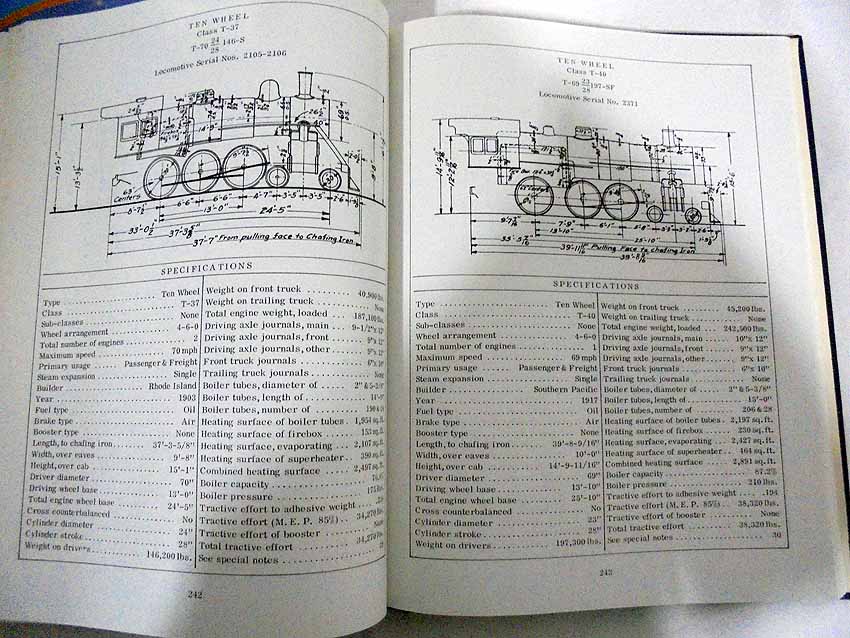 TEN WHEEL
Class T-37
T-70 24/28 146-S
Locomotive Serial Nos. 2105-2106
15'-1"
14'-9"
63 Centers
6'-6"
6'-6"
4'-7"
3'-5"
3'-5"
13'-0"
24'-5"
33'-0½
37'-7" From pulling face to Chafing Iron
SPECIFICATIONS
Type Ten Wheel
Class T-37
Sub-classes None
Wheel arrangement 4-6-0
Total number of engines 2
Maximum speed 70 mph
Primary usage Passenger & Freight
Steam expansion Single
Builder Rhode Island
Year 1903
Fuel type Oil
Brake type Air
Booster type None
Length, to chafing iron 37'-3-5/8"
Width, over eaves 9'-8"
Height, over cab 15'-1"
Driver diameter 70"
Driving wheel base 13'-0"
Total engine wheel base 24'-5"
Cross counterbalanced No
Cylinder diameter 24"
Cylinder stroke 28"
Weight on drivers 146,200 lbs.
Weight on front truck 40,900 lbs.
Weight on trailing truck None
Total engine weight, loaded 187,100 lbs.
Driving axle journals, main 9-1/2"x 12"
Driving axle journals, front 9"x 12"
Driving axle journals, other 9"x 12"
Front truck journals 6"x 10"
Trailing truck journals None
Boiler tubes, diameter of 2" & 5-3/8"
Boiler tubes, length of
Boiler tubes, number of
Heating surface of boiler tubes 1,954 sq. ft.
Heating surface of firebox 153 sq. ft.
Heating surface, evaporating 2,107 sq. ft.
Heating surface of superheater 390 sq. ft.
Combined heating surface 2,497 sq. ft.
Boiler capacity
Boiler pressure
Tractive effort to adhesive weight
Tractive effort (M. E. P. 85%) 34,270 lbs.
Tractive effort of booster None
Total tractive effort 34,270 lbs.
See special notes
242
TEN WHEEL
Class T-40
T-69 23/28 197-SF
Locomotive Serial No. 2371
7'-9"
6'-1"
13'-10"
25'-10"
Pulling Face to Chafing Iron
SPECIFICATIONS
Type Ten Wheel
Class T-40
Sub-classes None
Wheel arrangement 4-6-0
Total number of engines 1
Maximum speed 69 mph
Primary usage Passenger & Freight
Steam expansion Single
Builder Southern Pacific
Year 1917
Fuel type Oil
Brake type Air
Booster type None
Length, to chafing iron 39'-8-9/16"
Width, over eaves 10'-0"
Height, over cab 14'-9-11/16"
Driver diameter 69"
Driving wheel base 13'-10"
Total engine wheel base 25'-10"
Cross counterbalanced No
Cylinder diameter 23"
Cylinder stroke 28"
Weight on drivers 197,300 lbs.
Weight on front truck 45,200 lbs.
Weight on trailing truck None
Total engine weight, loaded 242,500 lbs.
Driving axle journals, main 10"x 12"
Driving axle journals, front 9"x 12"
Driving axle journals, other 9"x 12"
Front truck journals 6"x 10"
Trailing truck journals None
Boiler tubes, diameter of 2" & 5-3/8"
Boiler tubes, length of 15'-0"
Boiler tubes, number of 206 & 28
Heating surface of boiler tubes 2,197 sq. ft.
Heating surface of firebox 230 sq. ft.
Heating surface, evaporating 2,427 sq. ft.
Heating surface of superheater 464 sq. ft.
Combined heating surface 2,891 sq. ft.
Boiler capacity 87.2%
Boiler pressure 210 lbs.
Tractive effort to adhesive weight .194
Tractive effort (M. E. P. 85%) 38,320 lbs.
Tractive effort of booster None
Total tractive effort 38,320 lbs.
See special notes 30
243